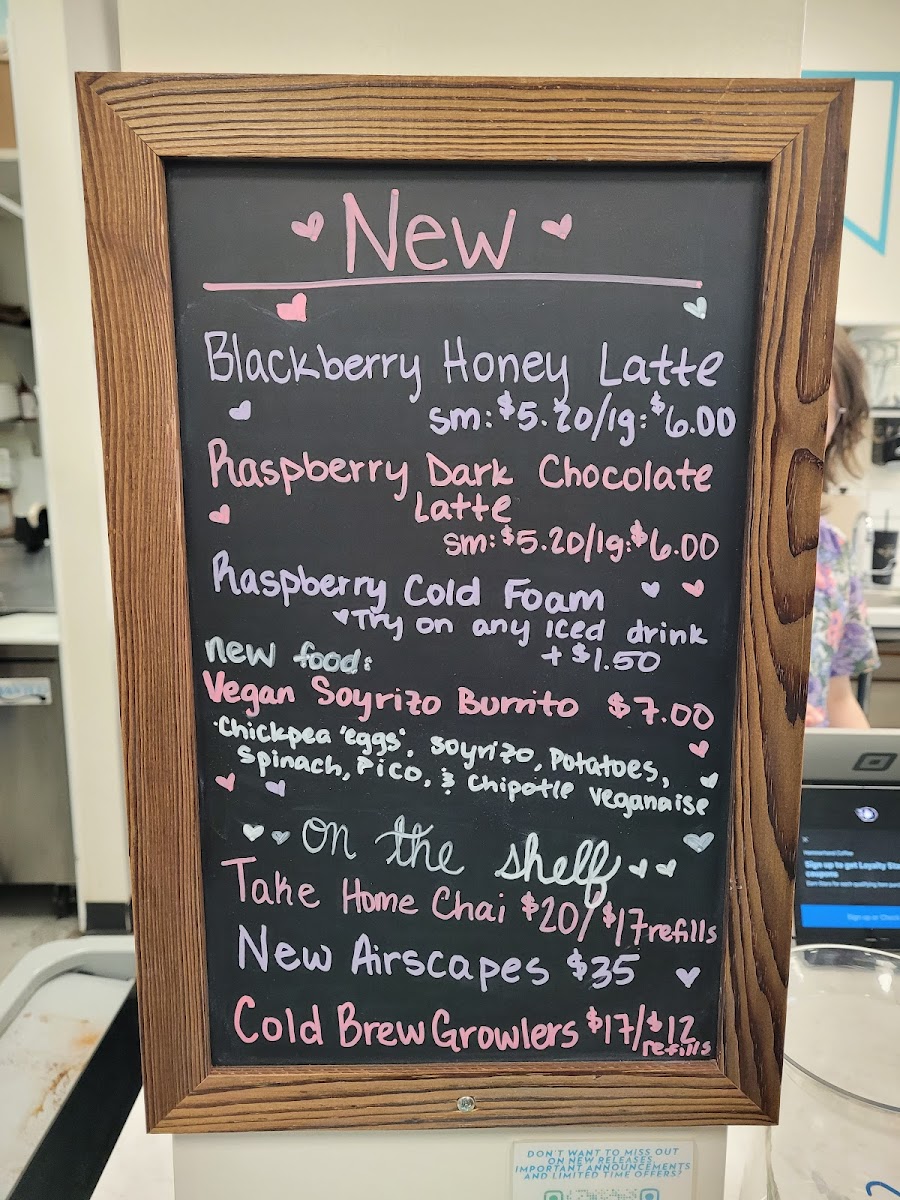 New
Blackberry Honey Latte
sm: $5.20/lg: $6.00
Raspberry Dark Chocolate
Latte
sm: $5.20/lg: $6.00
Raspberry Cold Foam
Try on any iced drink
+ $1.50
new food:
Vegan Soyrizo Burrito $7.00
·Chickpea 'eggs', soyrizo, Potatoes,
Spinach, Pico, & Chipotle veganaise
on the shelf
Take Home Chai $20/$17 refills
New Airscapes $35
Cold Brew Growlers $17/$12
refills
DON'T WANT TO MISS OUT
ON NEW RELEASES,
IMPORTANT ANNOUNCEMENTS
AND LIMITED TIME OFFERS?
Sign up to get Loyalty
coupons